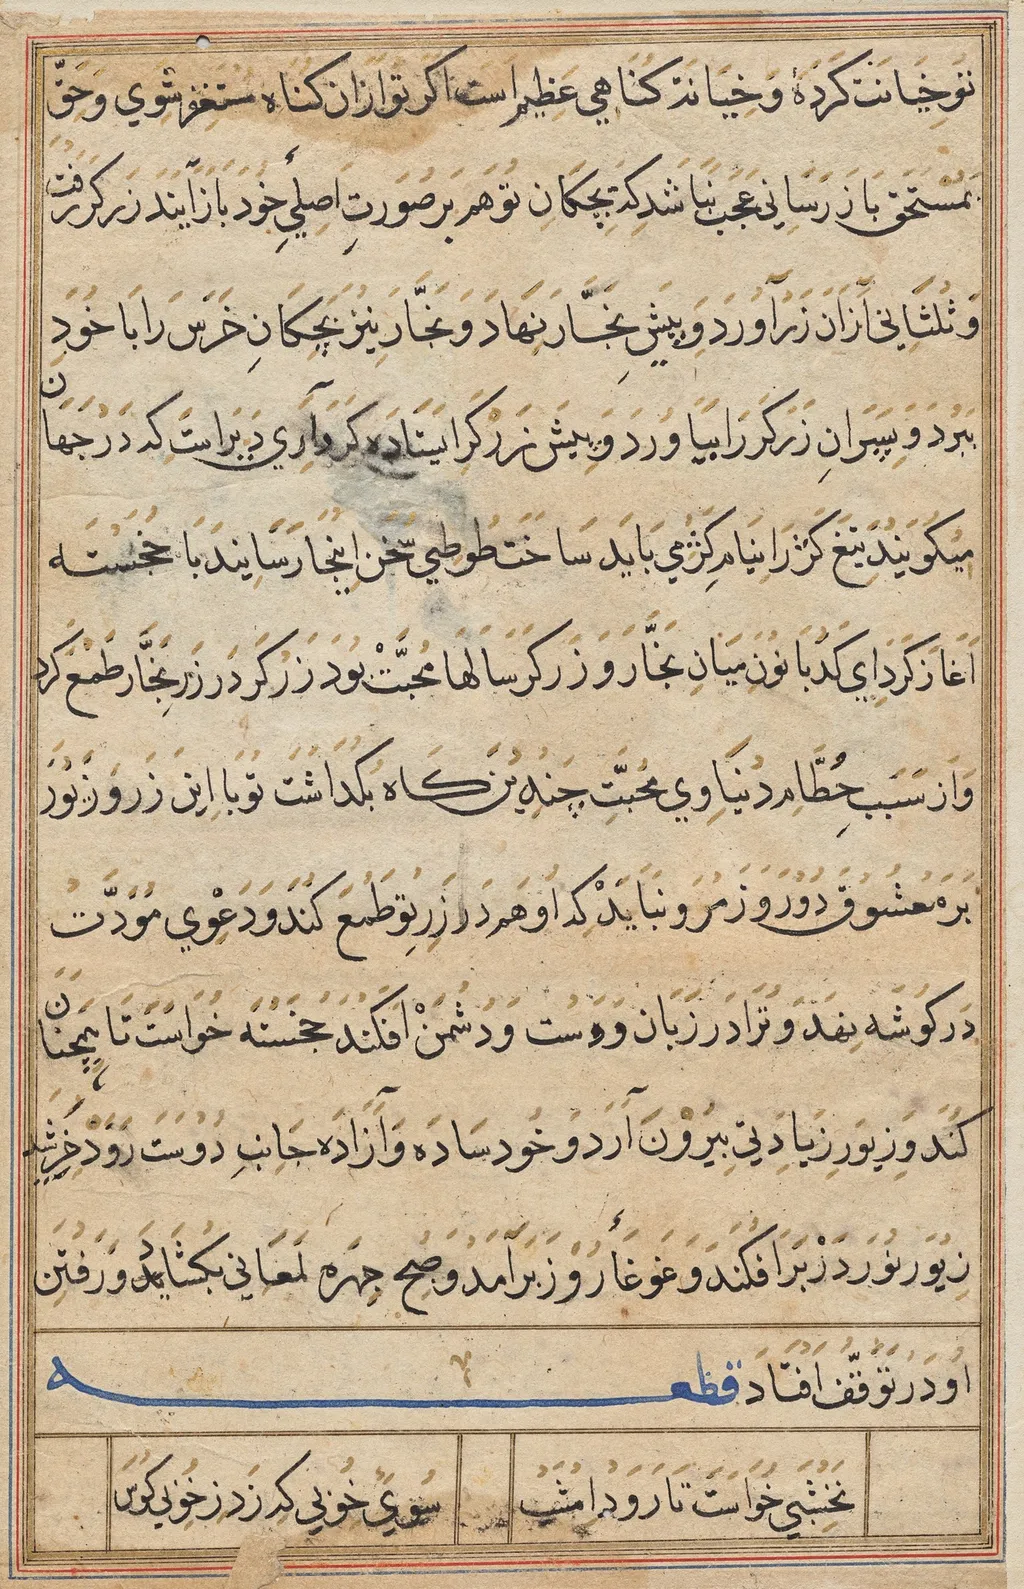 تو خیانت کردهٔ و خیانت کناهی عظیم است اکر تو ازان کناه مستغفر شوی و حق
بمستحق باز رسانی عجب نباشد که بچکان تو هم بر صورت اصلیٔ خود باز آیند زرکر رفت
و ثلثانی ازان زر آورد و پیش نجّار نهاد و نجّار نیز بچکان خرس را با خود
ببرد و پسران زرکر را بیاورد و پیش زرکر ایستاده کرد آری دیر است که در جهان
میکویند تیغ کژ را نیام کژ می باید ساخت طوطی سخن اینجا رسانید با خجسته
آغاز کرد ای کدبانو میان نجّار و زرکر سالها محبّت بود زرکر در زر نجّار طمع کرد
و از سبب حطّام دنیاوی محبّت چندین کاه بکذاشت تو با این زر و زیور
بر معشوق دو روز مرو نباید که او هم در زر تو طمع کند و دعوی مودّت
در کوشه نهد و ترا در زبان دوست و دشمن افکند خجسته خواست تا همچنان
کند و زیور زیادتی بیرون آرد و خود ساده و آزاده جانب دوست رود خرشید
زیور نور در بر افکند و غوغاء روز بر آمد و صبح چهره لمعانی بکشاید و رفتن
او در توقّف افتاد قطعه
نخشبی خواست تا رود امشب
سوی خوبی که زد ز خوبی کوس